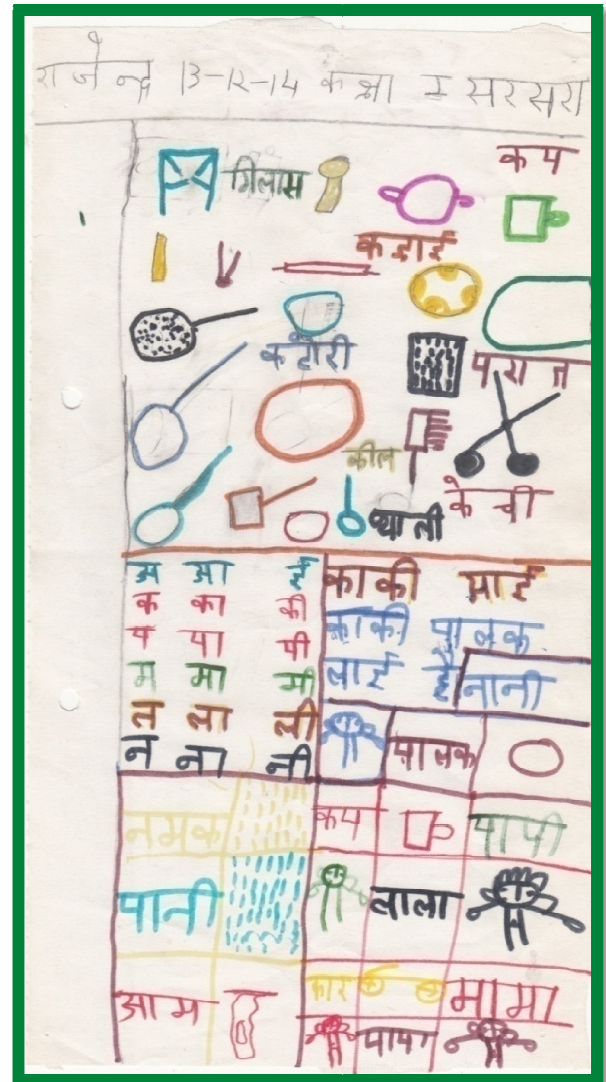 राजेन्द्र 13-12-14 कक्षा 1 सरसरा
कप
गिलास
कढ़ाई
कटोरी
परात
कील
केची
प्याली
अ आ ई
क का की
प पा पी
म मा मी
ल ला ली
न ना नी
काकी आई
काकी पालक
लाई है
नानी
पालक
नमक
कप
पापी
पानी
लाला
कार
मामा
आम
पापा